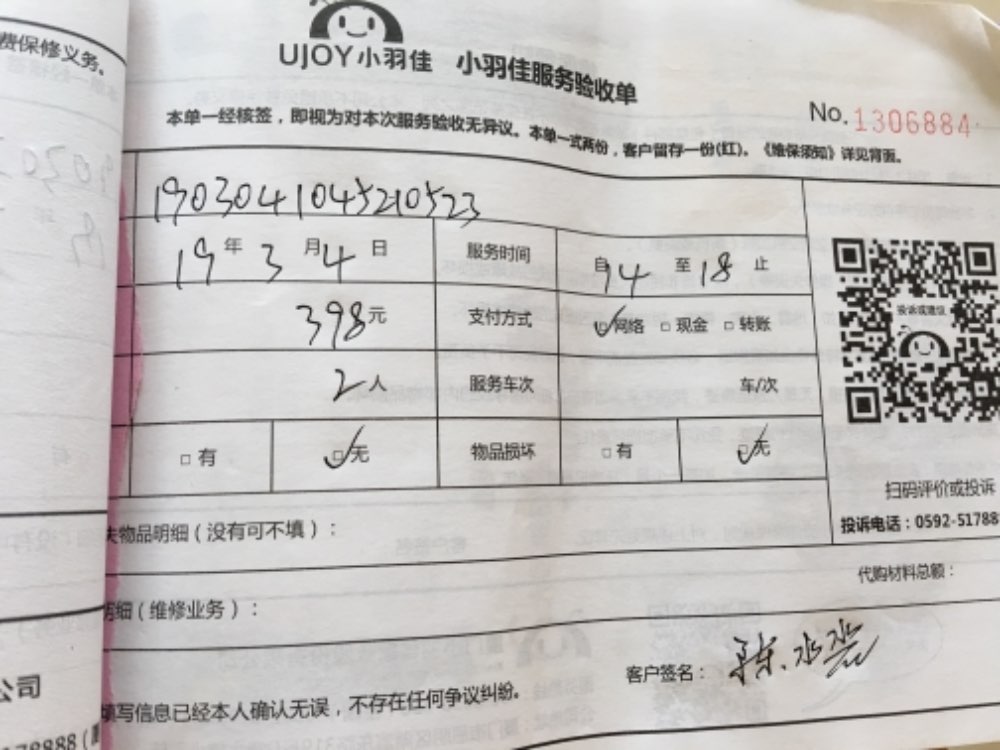 费保修义务。
UJOY小羽佳 小羽佳服务验收单
No.1306884
本单一经核签，即视为对本次服务验收无异议。本单一式两份，客户留存一份(红)。《维保须知》详见背面。
1903041045210523
19年3月4日 服务时间 自14至18止
398元 支付方式 网络 现金 转账
投诉或建议
2人 服务车次 车/次
有 无 物品损坏 有 无
扫码评价或投诉
投诉电话：0592-51788
失物品明细（没有可不填）：
代购材料总额：
明细（维修业务）：
客户签名：
公司
填写信息已经本人确认无误，不存在任何争议纠纷。
78888